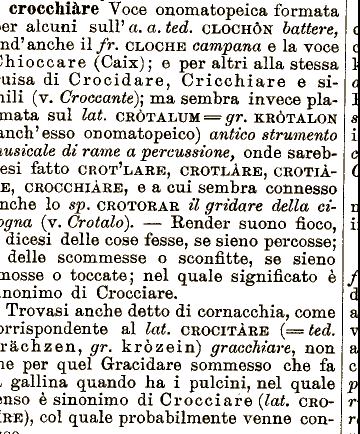 crocchiàre Voce onomatopeica formata
per alcuni sull'a. a. ted. CLOCHÔN battere,
ond'anche il fr. CLOCHE campana e la voce
Chioccare (Caix); e per altri alla stessa
guisa di Crocidare, Cricchiare e si-
mili (v. Croccante); ma sembra invece pla-
smata sul lat. CRÒTALUM = gr. KRÒTALON
(anch'esso onomatopeico) antico strumento
musicale di rame a percussione, onde sareb-
besi fatto CROT'LARE, CROTLÀRE, CROTIÀ-
RE, CROCCHIÀRE, e a cui sembra connesso
anche lo sp. CROTORAR il gridare della ci-
cogna (v. Crotalo). — Render suono fioco,
dicesi delle cose fesse, se sieno percosse;
delle scommesse o sconfitte, se sieno
mosse o toccate; nel quale significato è
sinonimo di Crocciare.
Trovasi anche detto di cornacchia, come
corrispondente al lat. CROCITÀRE (= ted.
krächzen, gr. kròzein) gracchiare, non
che per quel Gracidare sommesso che fa
gallina quando ha i pulcini, nel quale
senso è sinonimo di Crocciare (lat. CRO-
CÌRE), col quale probabilmente venne con-